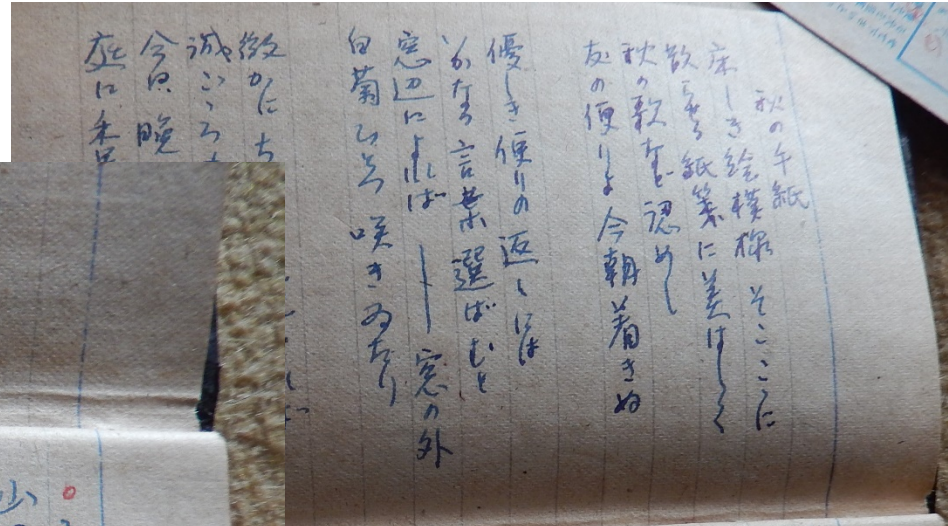 秋の手紙
床しき絵模様 そこここに
散らせる紙箋に美はしく
秋の歌など認めし
友の便りよ 今朝着きぬ
優しき便りの返しには
いかなる言葉選ばむと
窓辺によれば ― 窓の外
白菊ひそと咲きゐたり
微かに
誠こころ
今日、晩
庭に
山